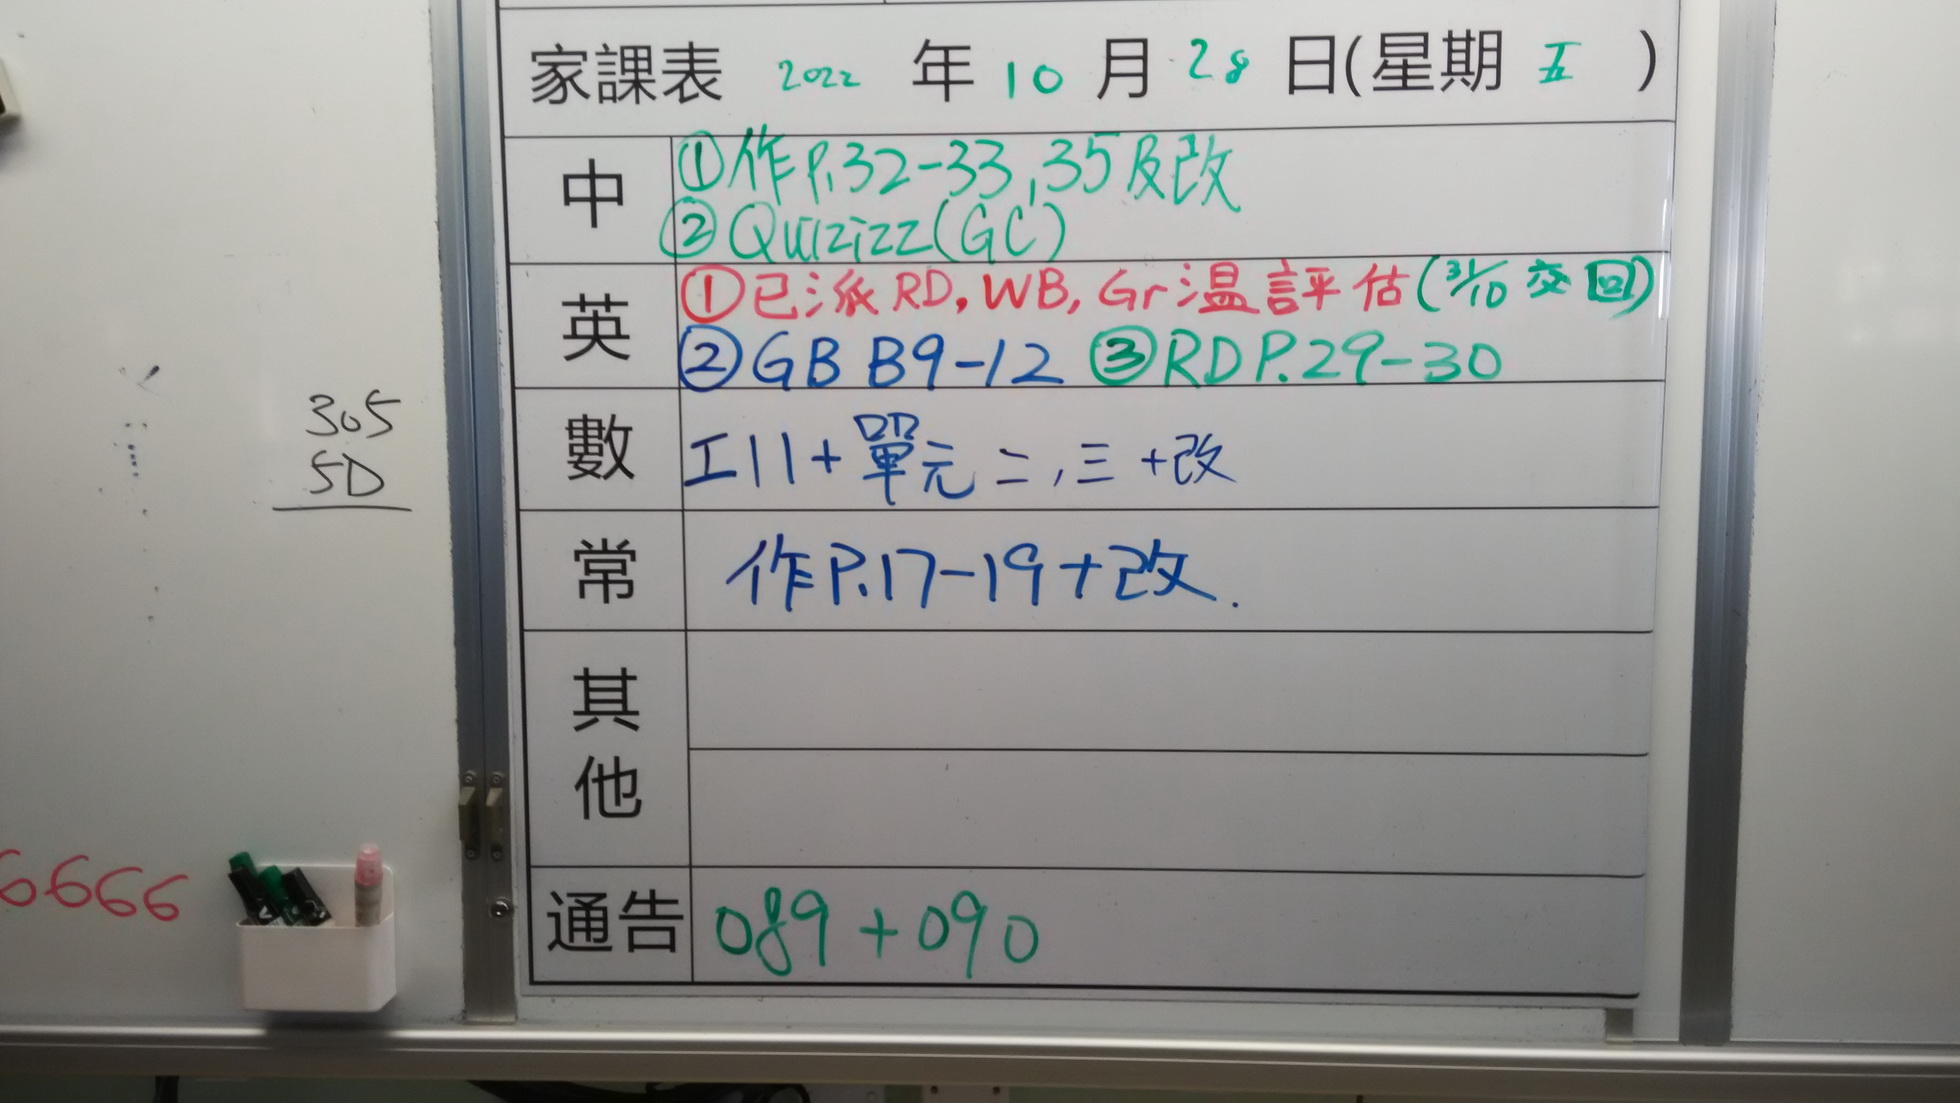 家課表 2022 年 10 月 28 日(星期 五 )
中 ①作P.32-33,35及改
②Quizizz(GC)
英 ①已派RD,WB,Gr温評估(31/10交回)
②GB B9-12 ③RD P.29-30
數 工11+單元二,三+改
常 作P.17-19+改.
其他
通告 089+090
305
5D
6666